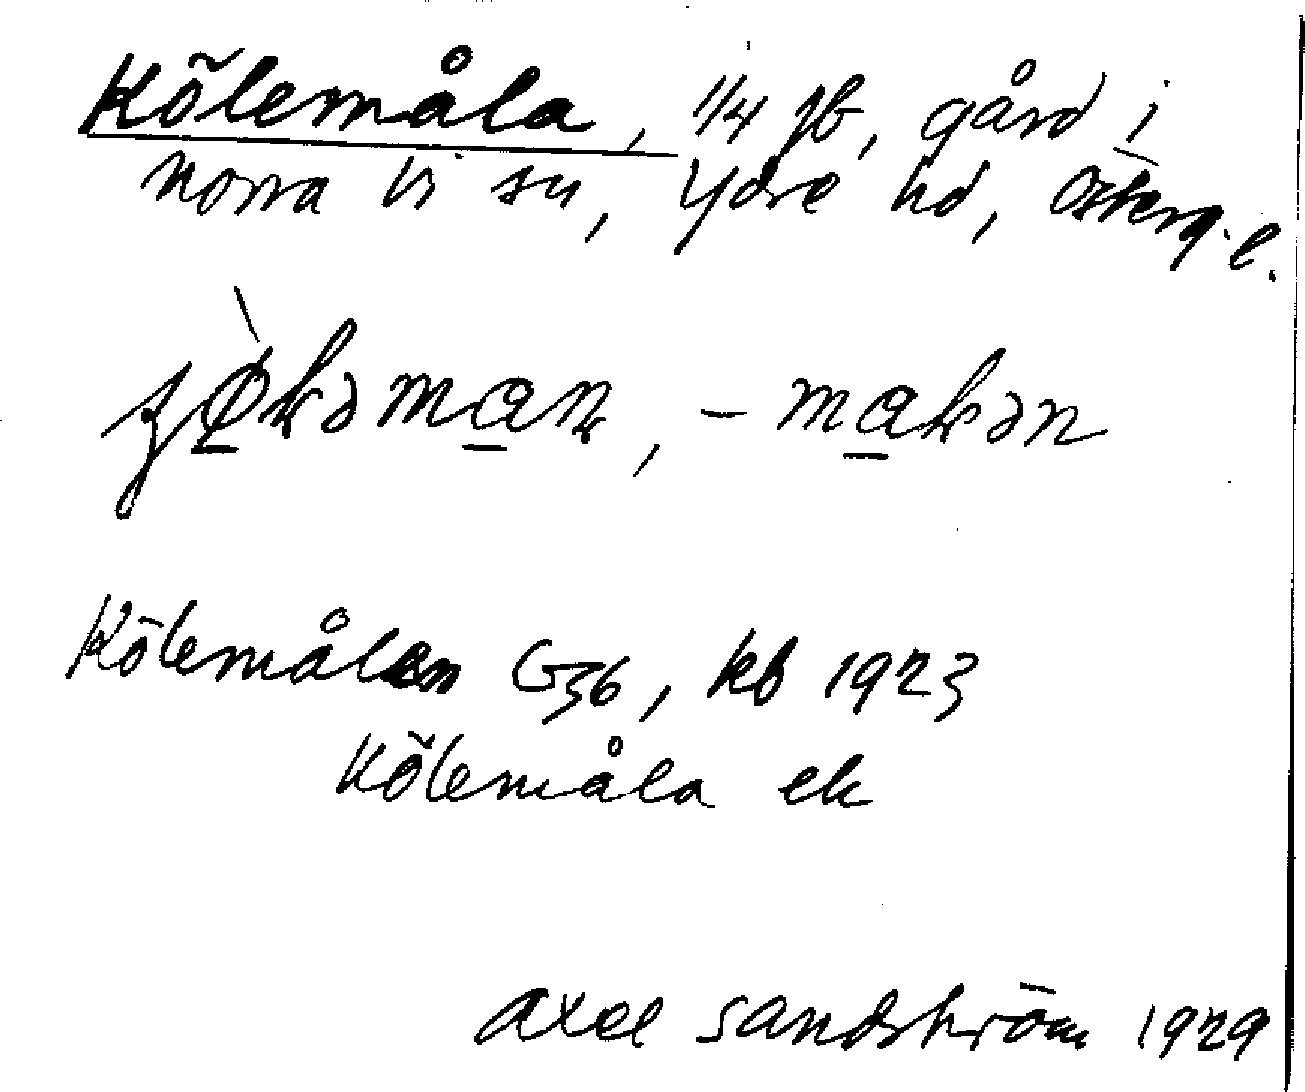 Kölemåla, 1/4 jb, gård i
Norra Vi sn, Ydre hd, Österg. l.
Kölemålen G36, kb 1923
Kölemåla ek
Axel Sandström 1929